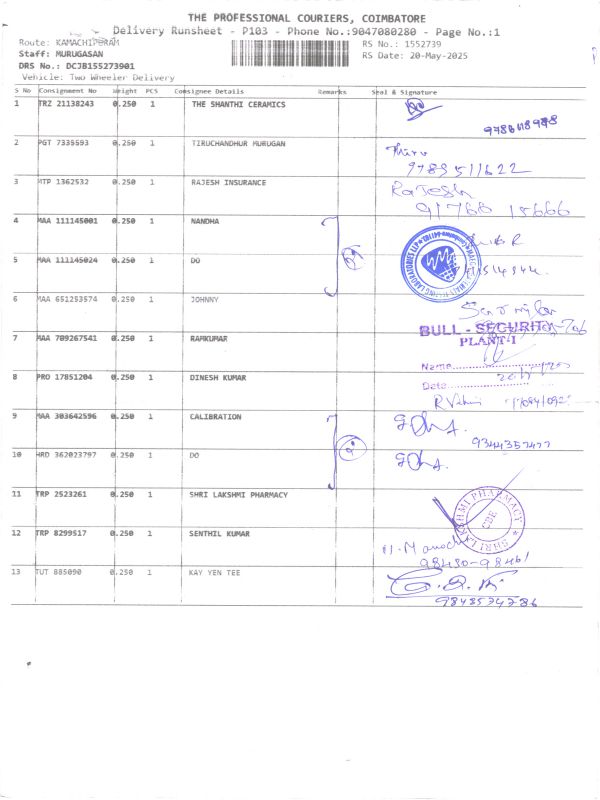 THE PROFESSIONAL COURIERS, COIMBATORE
Delivery Runsheet - P103 - Phone No.:9047080280 - Page No.:1
Route: KAMACHIPURAM
RS No.: 1552739
Staff: MURUGASAN
RS Date: 20-May-2025
DRS No.: DCJB155273901
Vehicle: Two Wheeler Delivery
S No Consignment No Weight PCS Consignee Details Remarks Seal & Signature
1 TRZ 21138243 0.250 1 THE SHANTHI CERAMICS
2 PGT 7339593 0.250 1 TIRUCHANDHUR MURUGAN
9789511622
3 MTP 1362532 0.250 1 RAJESH INSURANCE
Rajesh
91766 15666
4 MAA 111145001 0.250 1 NANDHA
5 MAA 111145024 0.250 1 DO
2
6 MAA 651253574 0.250 1 JOHNNY
BULL - SECURITY
PLANT-I
7 MAA 709267541 0.250 1 RAMKUMAR
Name
8 PRO 17851204 0.250 1 DINESH KUMAR
Date
9 MAA 303642596 0.250 1 CALIBRATION
9344357477
10 HRD 362023797 0.250 1 DO
2
11 TRP 2523261 0.250 1 SHRI LAKSHMI PHARMACY
SHRI LAKSHMI PHARMACY
CBE
12 TRP 8299517 0.250 1 SENTHIL KUMAR
98430-98461
13 TUT 885090 0.250 1 KAY YEN TEE